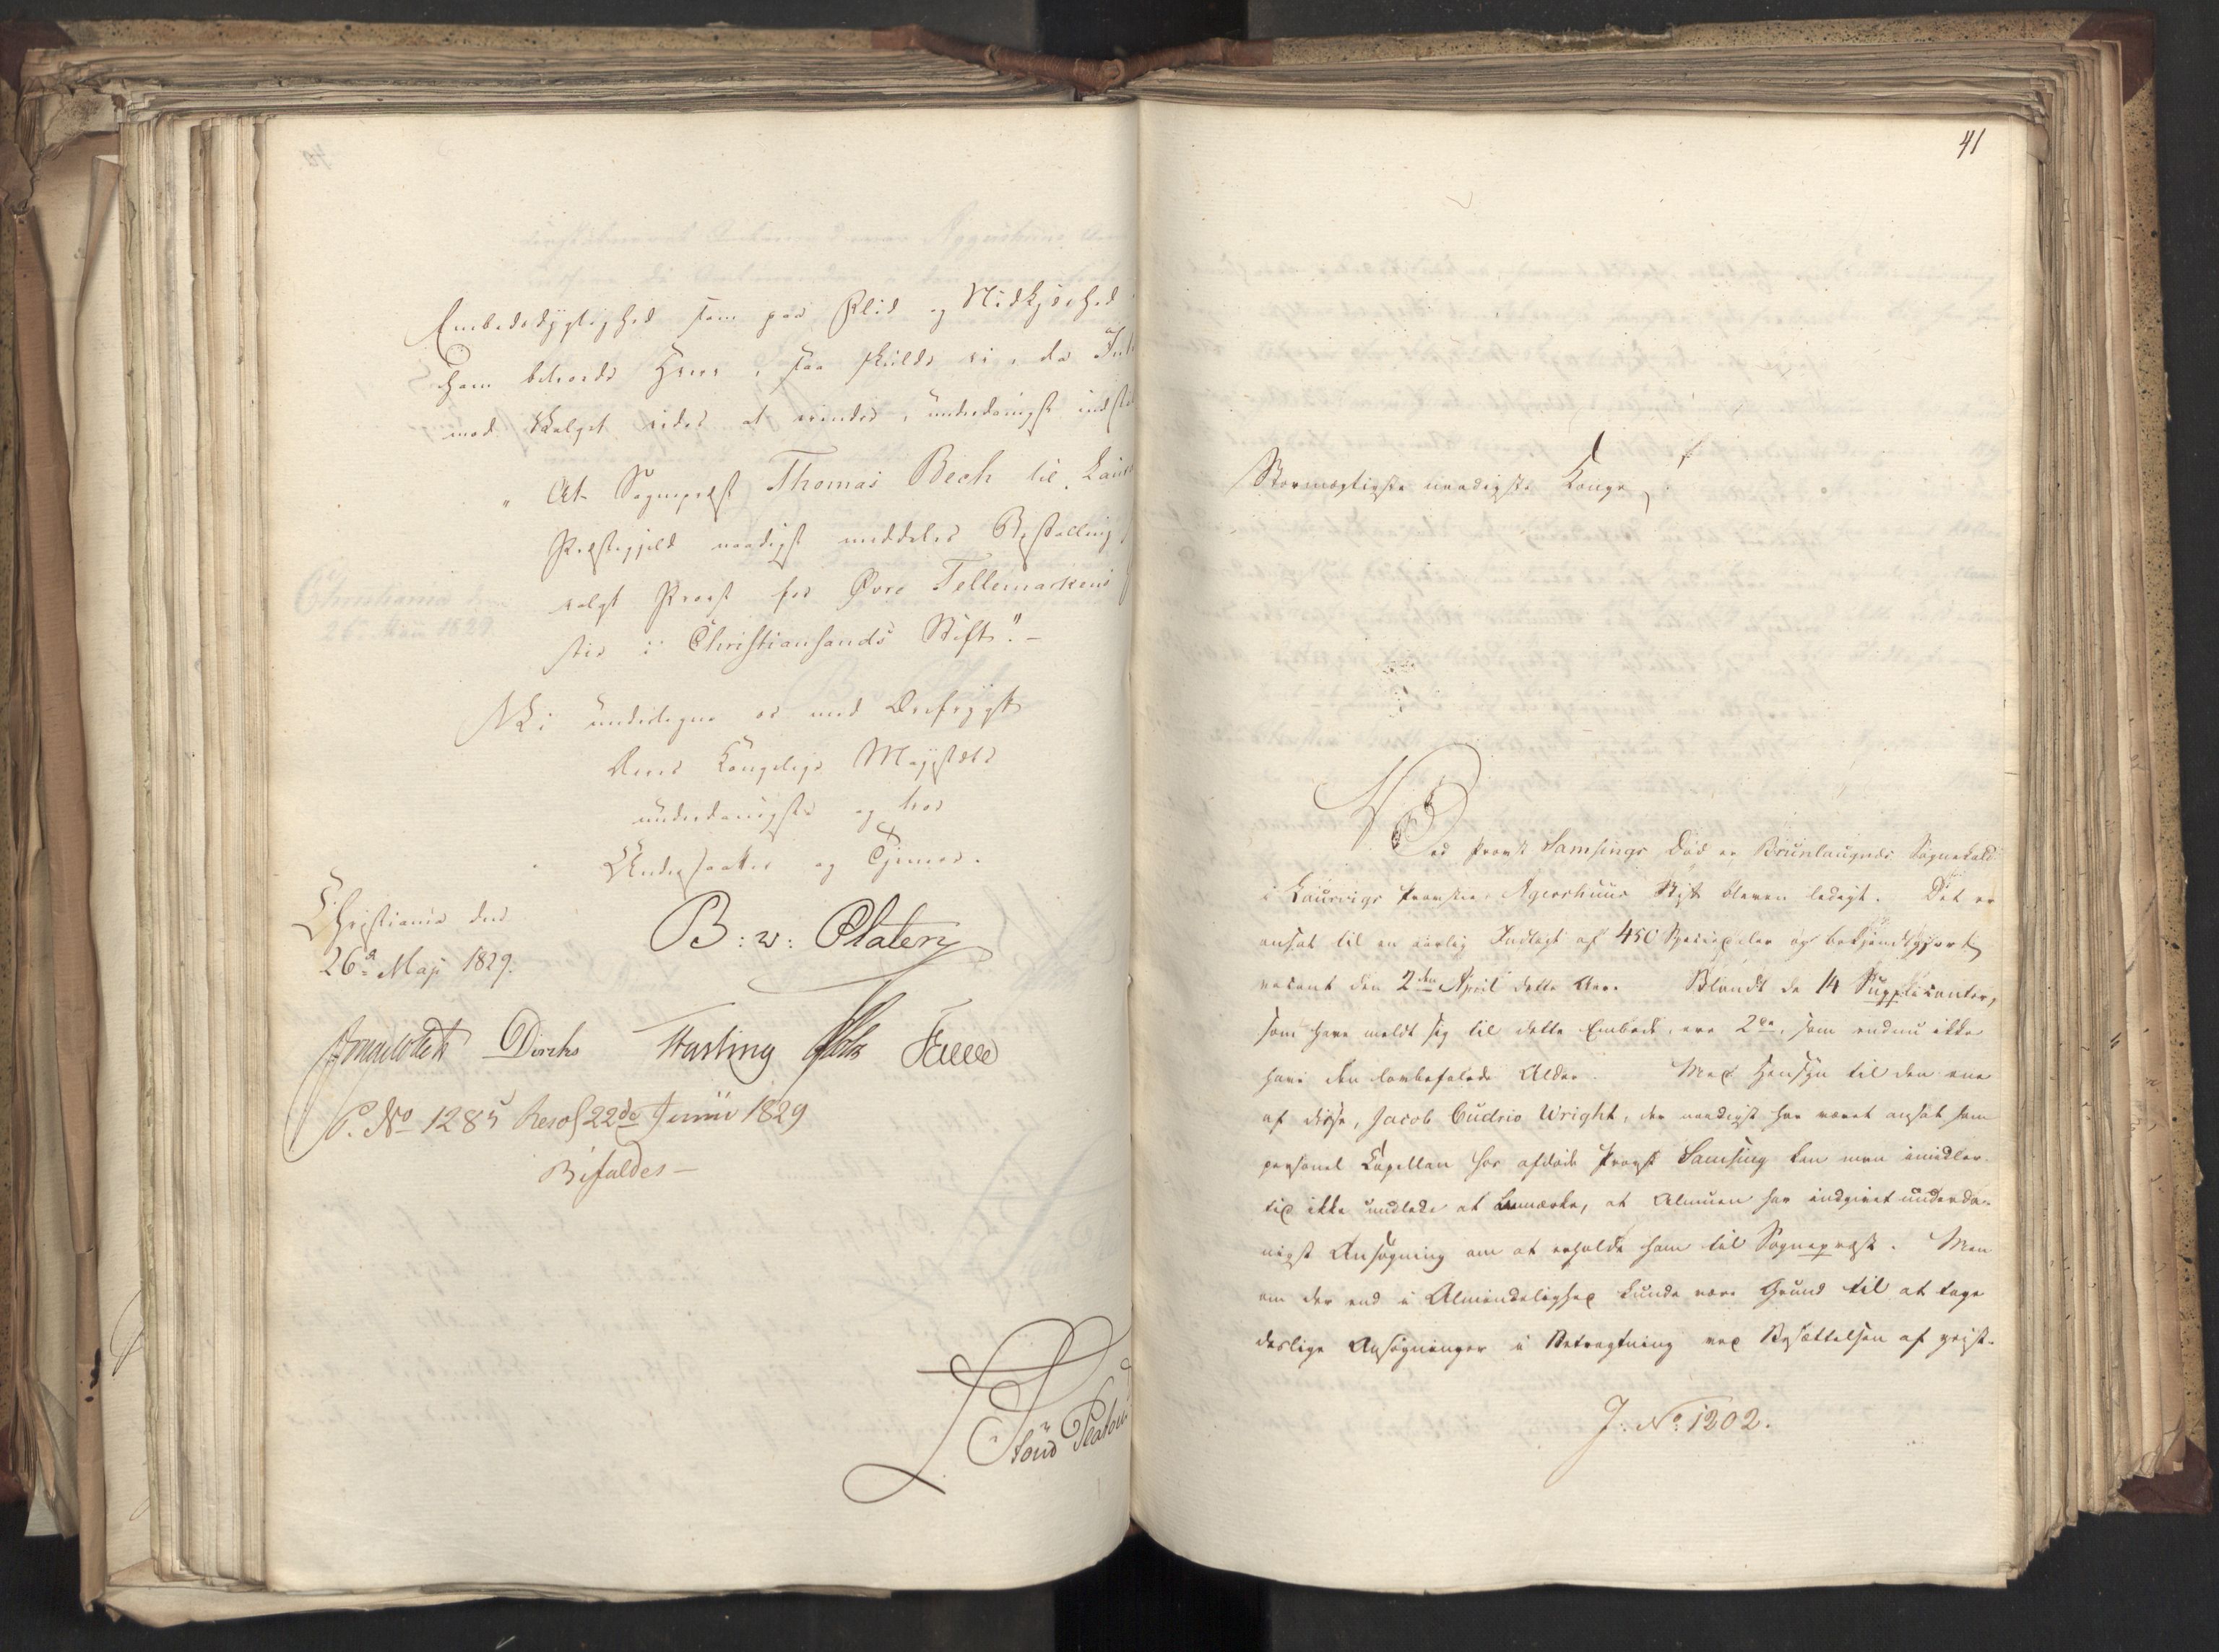 Embedsdygtighed som paa Flid og Nidkjærhed
ham betroede Hverv, saa skulde vi, da Int
mod Valget vides at erindre, underdanigst indst
"At Sognepræst Thomas Bech til Laur
Præstegjeld naadigst meddeles Bestalling
valgt Provst for Øvre Tellemarkens
stie i Christiansands Stift." -
Vi undertegne os med Dybfrygt
Deres Kongelige Majestæts
underdanigste og troe
Undersaatter og Tjenere.
Christiania den
26de Maji 1829.
B: v: Platen
Diriks Fasting Holst Falbe
P. No 1285 Resol 22de Junii 1829
Bifaldes -
41
Stormægtigste naadigste Konge!
Ved Provst Samsings Død er Brunlaugnæs Sognekald
i Laurvigs Provstie, Agershuus Stift bleven ledigt. Det er
ansat til en aarlig Indtægt af 450 Speciedaler og bekjendtgjort
vacant den 2den April dette Aar. Blandt de 14 Supplicanter,
som have meldt sig til dette Embede, ere 2de, som endnu ikke
have den lovbefalede Alder. Med Hensyn til den ene
af disse, Jacob Cudrio Wright, der naadigst har været ansat som
personel Capellan hos afdøde Provst Samsing kan man imidler-
tid ikke undlade at bemærke, at Almuen har indgivet underda-
nigst Ansøgning om at erholde ham til Sognepræst. Men
om der end i Almindelighed kunde være Grund til at tage
deslige Ansøgninger i Betragtning ved Besættelsen af geist-
J: No: 1202.